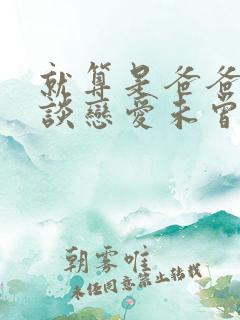 就算是爸爸
談戀愛未曾
朝霧唯
未任同意禁止轉載